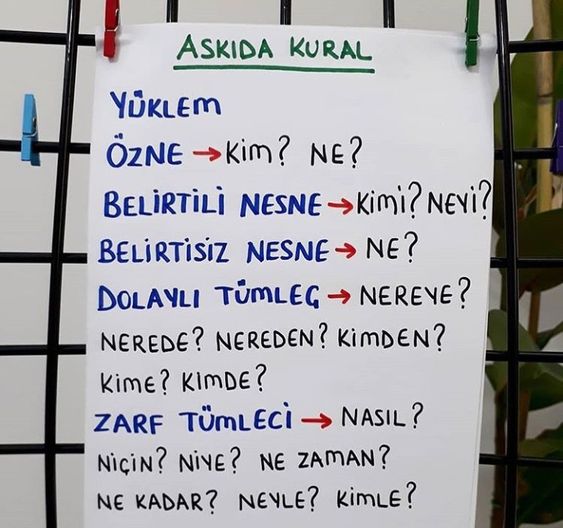 ASKIDA KURAL
YÜKLEM
ÖZNE → Kim? NE?
BELİRTİLİ NESNE → Kimi? NEYİ?
BELİRTİSİZ NESNE → NE?
DOLAYLI TÜMLEÇ → NEREYE?
NEREDE? NEREDEN? KİMDEN?
Kime? KİMDE?
ZARF TÜMLECİ → NASIL?
NİÇİN? NİYE? NE ZAMAN?
NE KADAR? NEYLE? KİMLE?